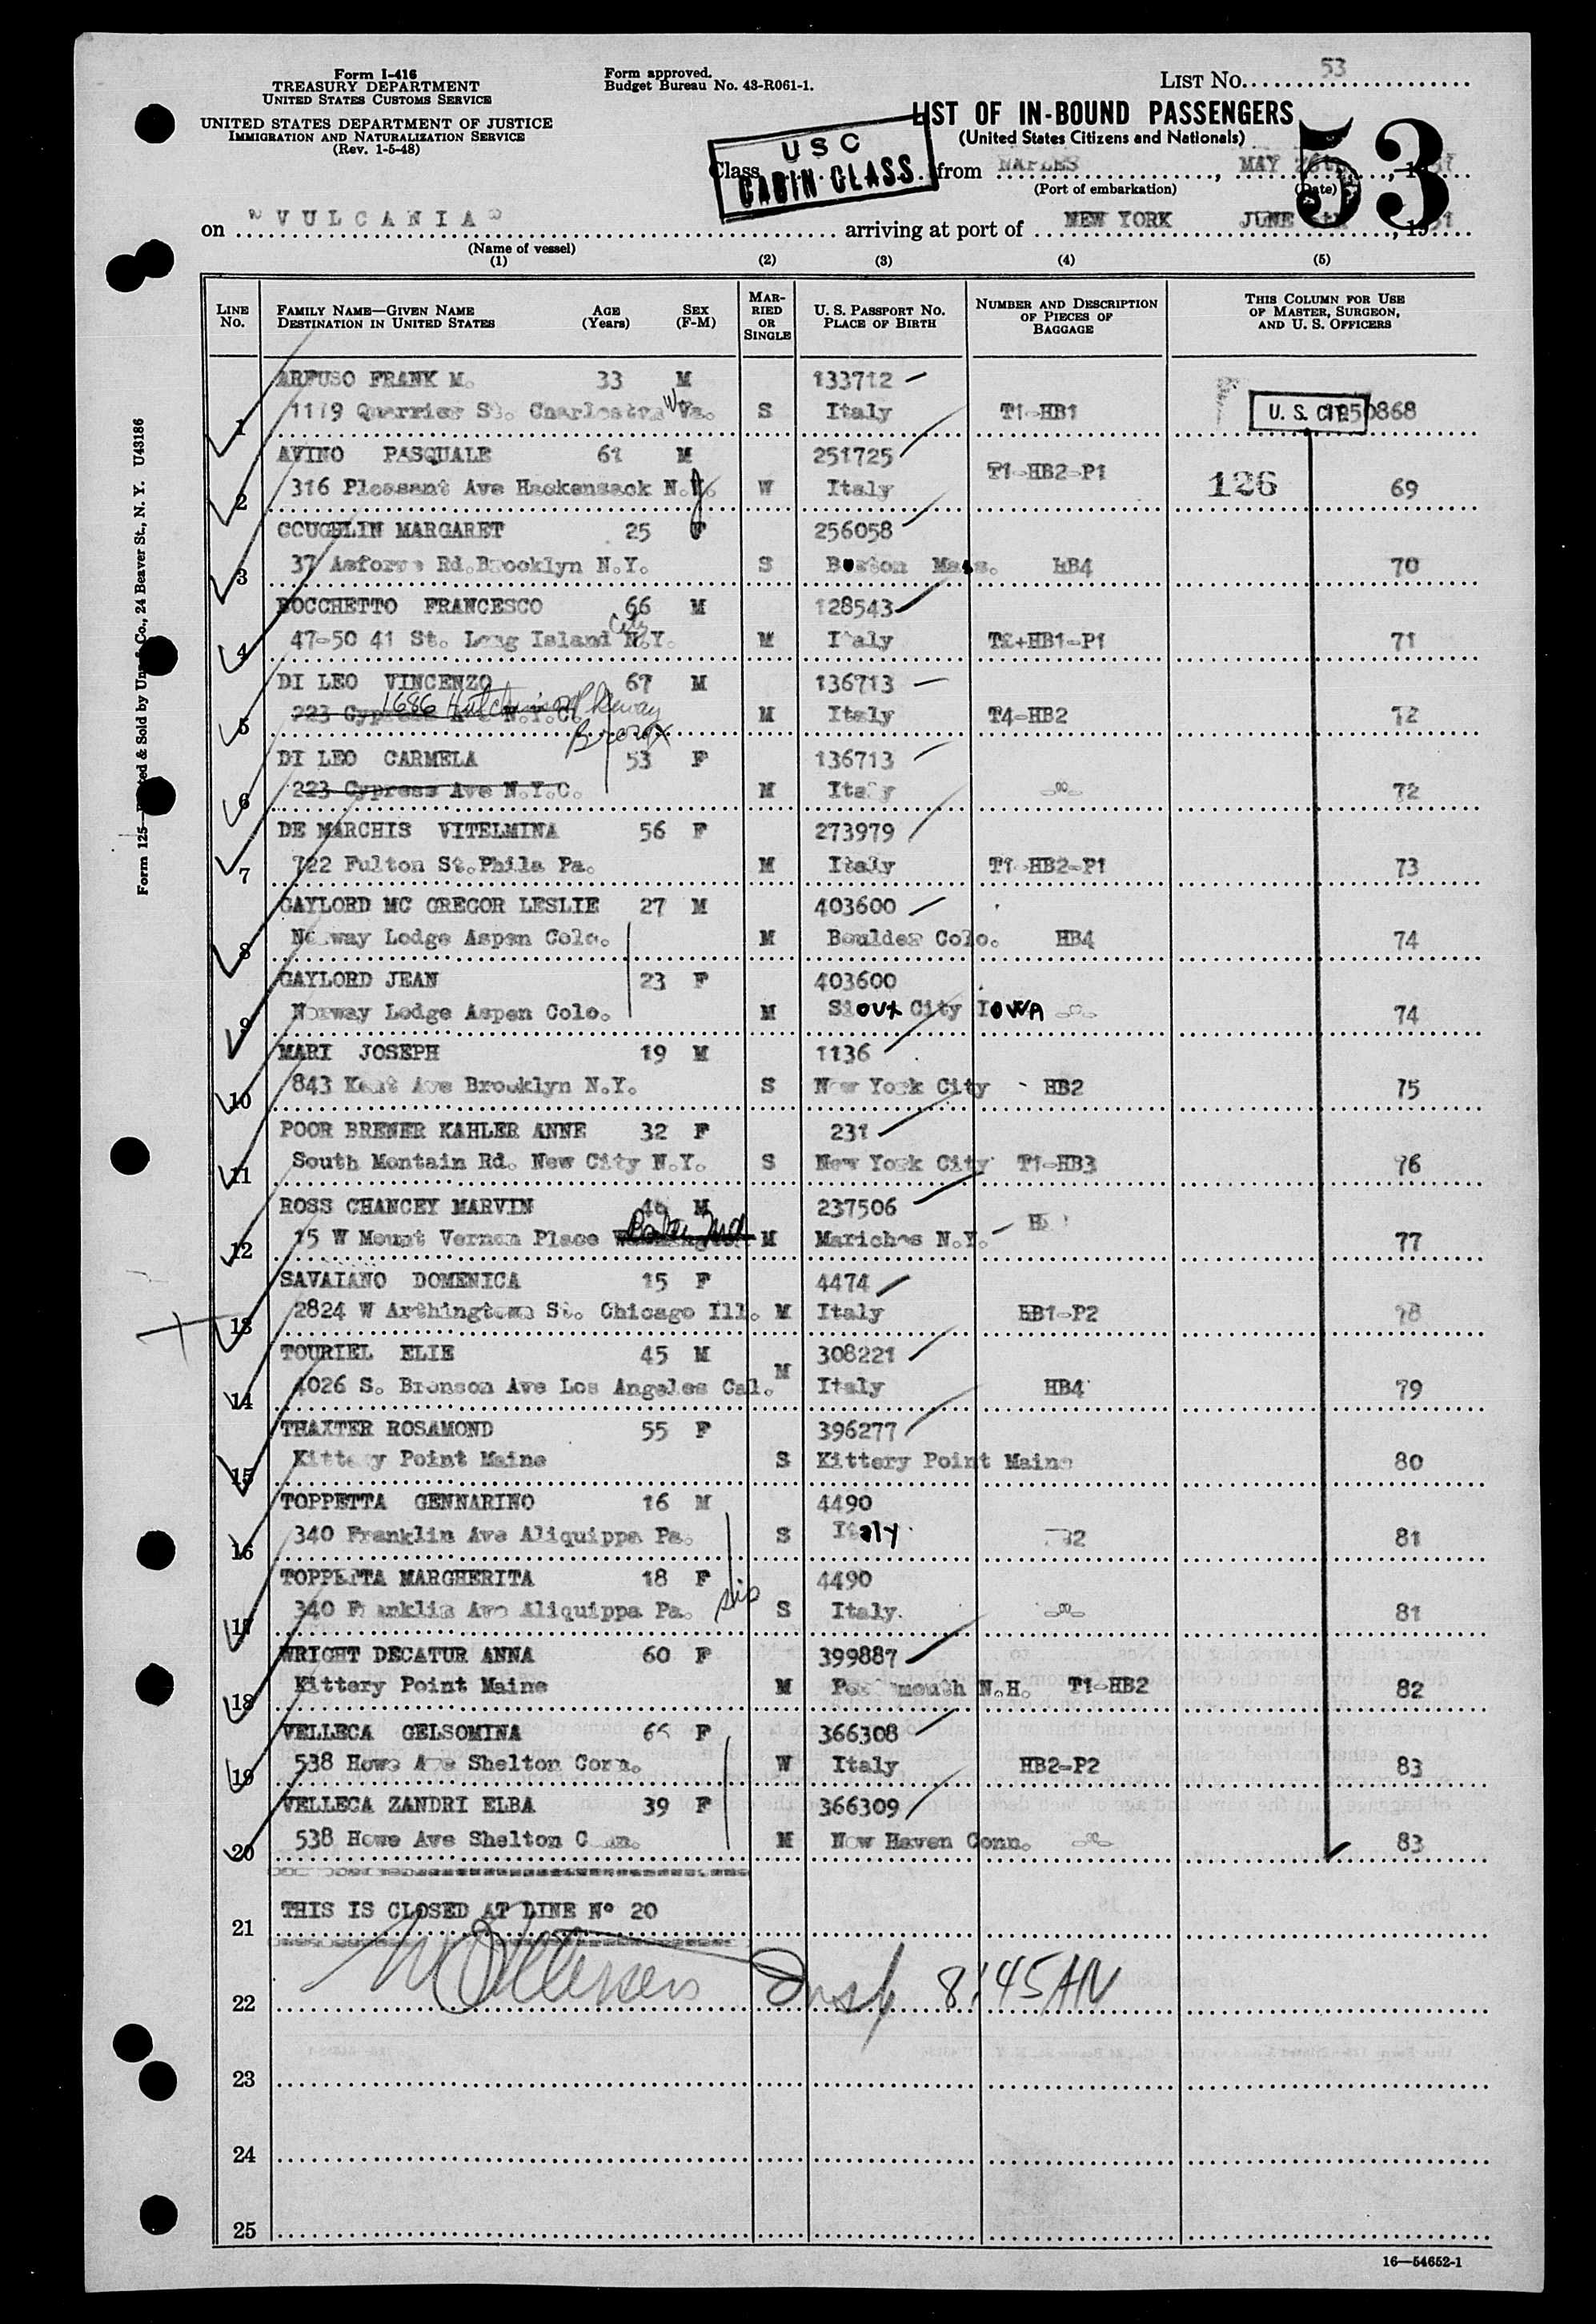 Form I-416
TREASURY DEPARTMENT
UNITED STATES CUSTOMS SERVICE
UNITED STATES DEPARTMENT OF JUSTICE
IMMIGRATION AND NATURALIZATION SERVICE
(Rev. 1-5-48)
Form approved.
Budget Bureau No. 43-R061-1.
LIST No. 53
LIST OF IN-BOUND PASSENGERS
(United States Citizens and Nationals)
53
USC
CABIN CLASS
Class from NAPLES, MAY 26th, 1951
(Port of embarkation) (Date)
on "VULCANIA" arriving at port of NEW YORK JUNE 1951
(Name of vessel)
(1) (2) (3) (4) (5)
LINE No. FAMILY NAME—GIVEN NAME DESTINATION IN UNITED STATES AGE (Years) SEX (F-M) MARRIED OR SINGLE U. S. PASSPORT NO. PLACE OF BIRTH NUMBER AND DESCRIPTION OF PIECES OF BAGGAGE THIS COLUMN FOR USE OF MASTER, SURGEON, AND U. S. OFFICERS
ARFUSO FRANK M. 33 M 133712
1 1119 Quarrier St. Charleston W Va. S Italy T1-HB1 U. S. CIT 50868
AVINO PASQUALE 61 M 251725
2 316 Pleasant Ave Hackensack N.J. W Italy T1-HB2-P1 126 69
COUGHLIN MARGARET 25 F 256058
3 37 Rd. Brooklyn N.Y. S Boston Mass. HB4 70
BOCCHETTO FRANCESCO 66 M 128543
4 47-50 41 St. Long Island City N.Y. M Italy T2+HB1-P1 71
DI LEO VINCENZO 67 M 136713
1686 Hutchinson Pkway
5 223 Cypress Ave N.Y.C. M Italy T4-HB2 72
Bronx
DI LEO CARMELA 53 F 136713
6 223 Cypress Ave N.Y.C. M Italy -"- 72
DE MARCHIS VITELMINA 56 F 273979
7 722 Fulton St. Phila Pa. M Italy T1-HB2-P1 73
GAYLORD MC GREGOR LESLIE 27 M 403600
8 Norway Lodge Aspen Colo. M Boulder Colo. HB4 74
GAYLORD JEAN 23 F 403600
9 Norway Lodge Aspen Colo. M Sioux City IOWA -"- 74
MARI JOSEPH 19 M 1136
10 843 Kent Ave Brooklyn N.Y. S New York City HB2 75
POOR BRENER KAHLER ANNE 32 F 231
11 South Montain Rd. New City N.Y. S New York City T1-HB3 76
ROSS CHANCEY MARVIN 46 M 237506
12 15 W Mount Vernon Place M Mariches N.Y. 77
SAVAIANO DOMENICA 15 F 4474
13 2824 W Arthingtown St. Chicago Ill. M Italy HB1-P2 78
TOURIEL ELIE 45 M 308221
14 4026 S. Bronson Ave Los Angeles Cal. M Italy HB4 79
THAXTER ROSAMOND 55 F 396277
15 Kittery Point Maine S Kittery Point Maine 80
TOPPETTA GENNARINO 16 M 4490
16 340 Franklin Ave Aliquippa Pa. S Italy 81
TOPPETTA MARGHERITA 18 F 4490
17 340 Franklin Ave Aliquippa Pa. sis S Italy. -"- 81
WRIGHT DECATUR ANNA 60 F 399887
18 Kittery Point Maine M Portsmouth N.H. T1-HB2 82
VELLECA GELSOMINA 66 F 366308
19 538 Howe Ave Shelton Conn. W Italy HB2-P2 83
VELLECA ZANDRI ELBA 39 F 366309
20 538 Howe Ave Shelton Conn. M New Haven Conn. -"- 83
THIS IS CLOSED AT LINE N° 20
21
22 Insp 8:45 AM
23
24
25
16—54652-1
Form 125—Printed & Sold by Unz & Co., 24 Beaver St., N. Y. U43186